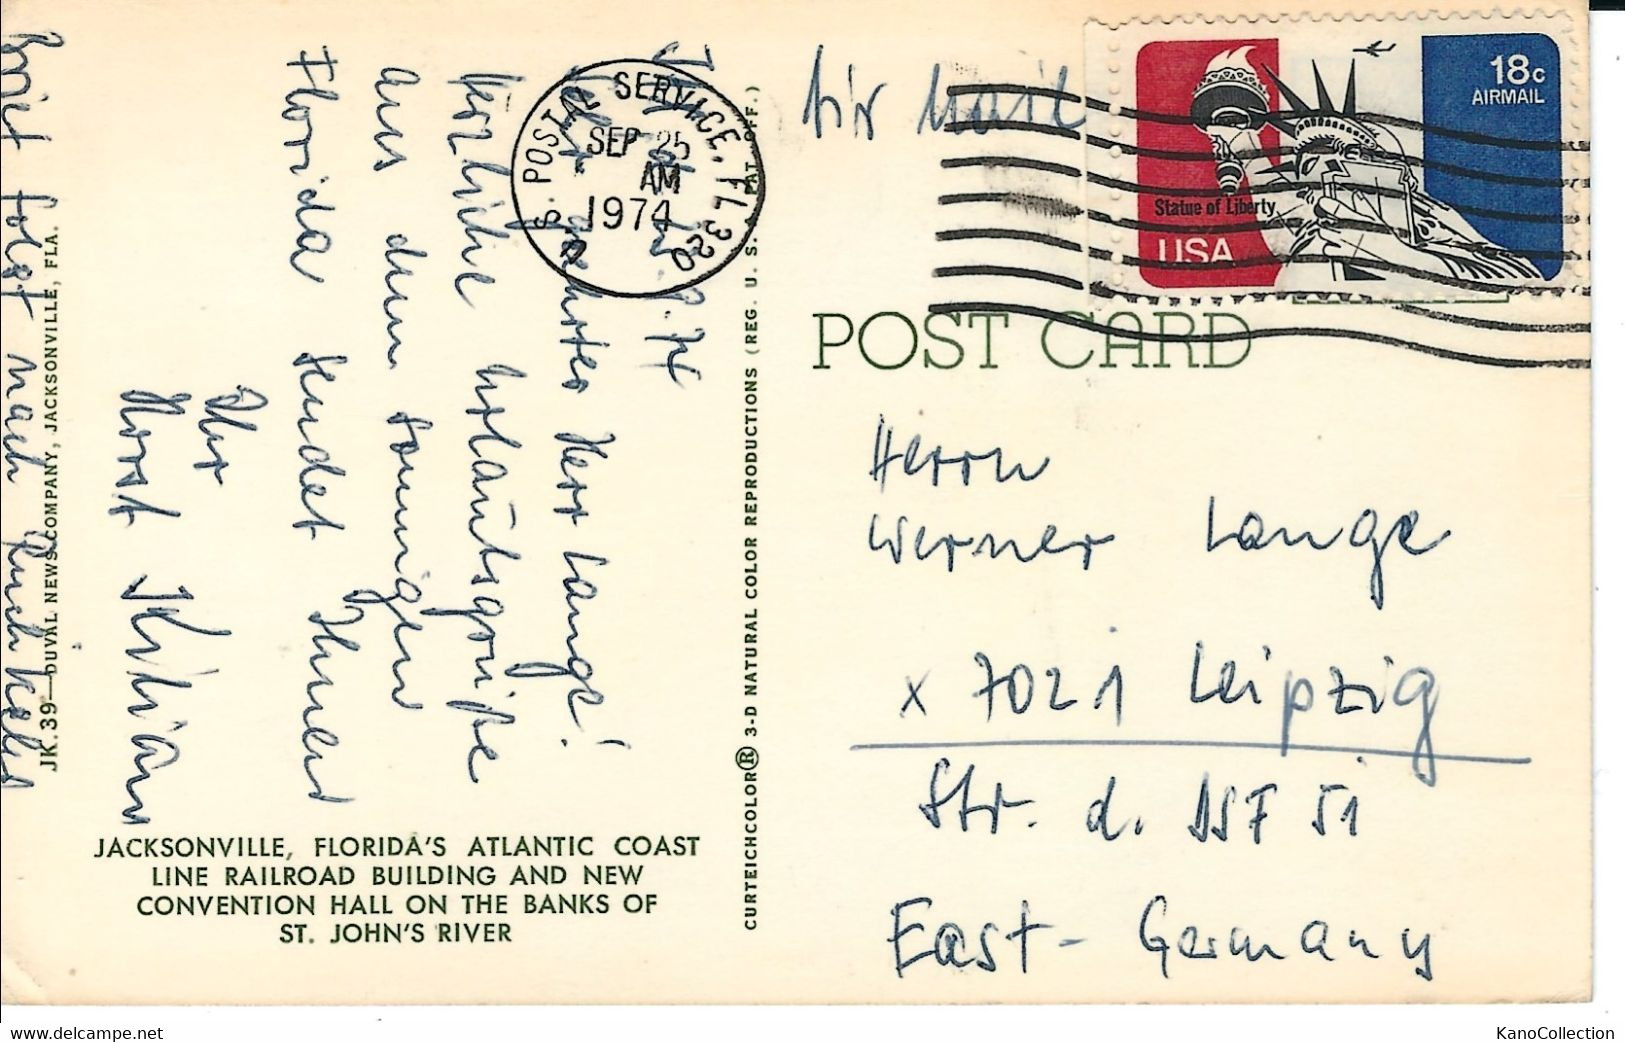 Air Mail
18c
AIRMAIL
Statue of Liberty
USA
U.S. POSTAL SERVICE, FL 320
SEP 25
AM
1974
POST CARD
Herrn
Werner Lange
x 7021 Leipzig
Str. d. DSF 51
East-Germany
Sehr geehrter Herr Lange!
Herzliche Urlaubsgrüße
aus dem sonnigen
Florida sendet Ihnen
Ihr
Horst Kilian
Brief folgt nach Rückkehr
JACKSONVILLE, FLORIDA'S ATLANTIC COAST
LINE RAILROAD BUILDING AND NEW
CONVENTION HALL ON THE BANKS OF
ST. JOHN'S RIVER
JK.39—DUVAL NEWS COMPANY, JACKSONVILLE, FLA.
CURTEICHCOLOR® 3-D NATURAL COLOR REPRODUCTIONS (REG. U. S. PAT. OFF.)
www.delcampe.net
KanoCollection